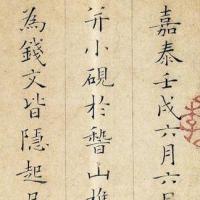 嘉泰壬戌六月六日
并小硯於稽山樵
為錢文皆隱起